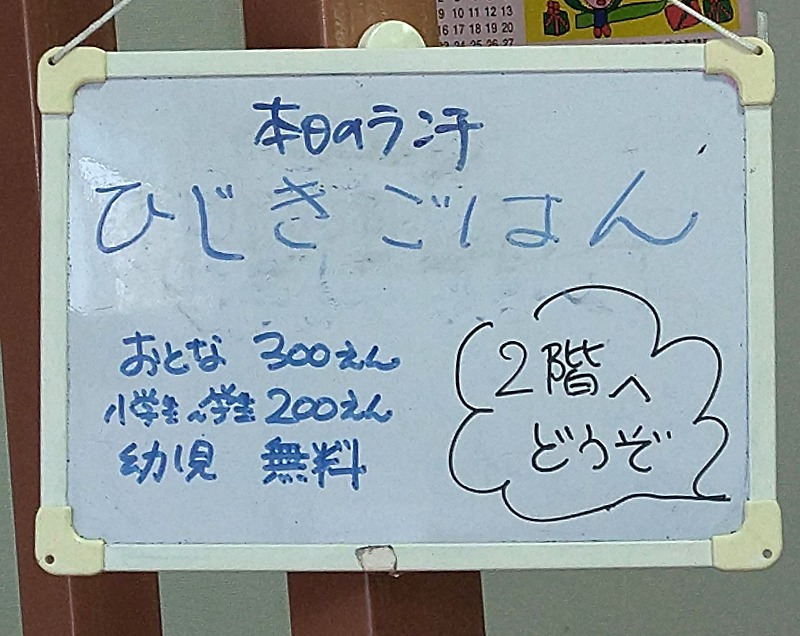 9 10 11 12 13
16 17 18 19 20
本日のランチ
ひじきごはん
おとな 300えん
小学生~学生 200えん
幼児 無料
2階へ
どうぞ